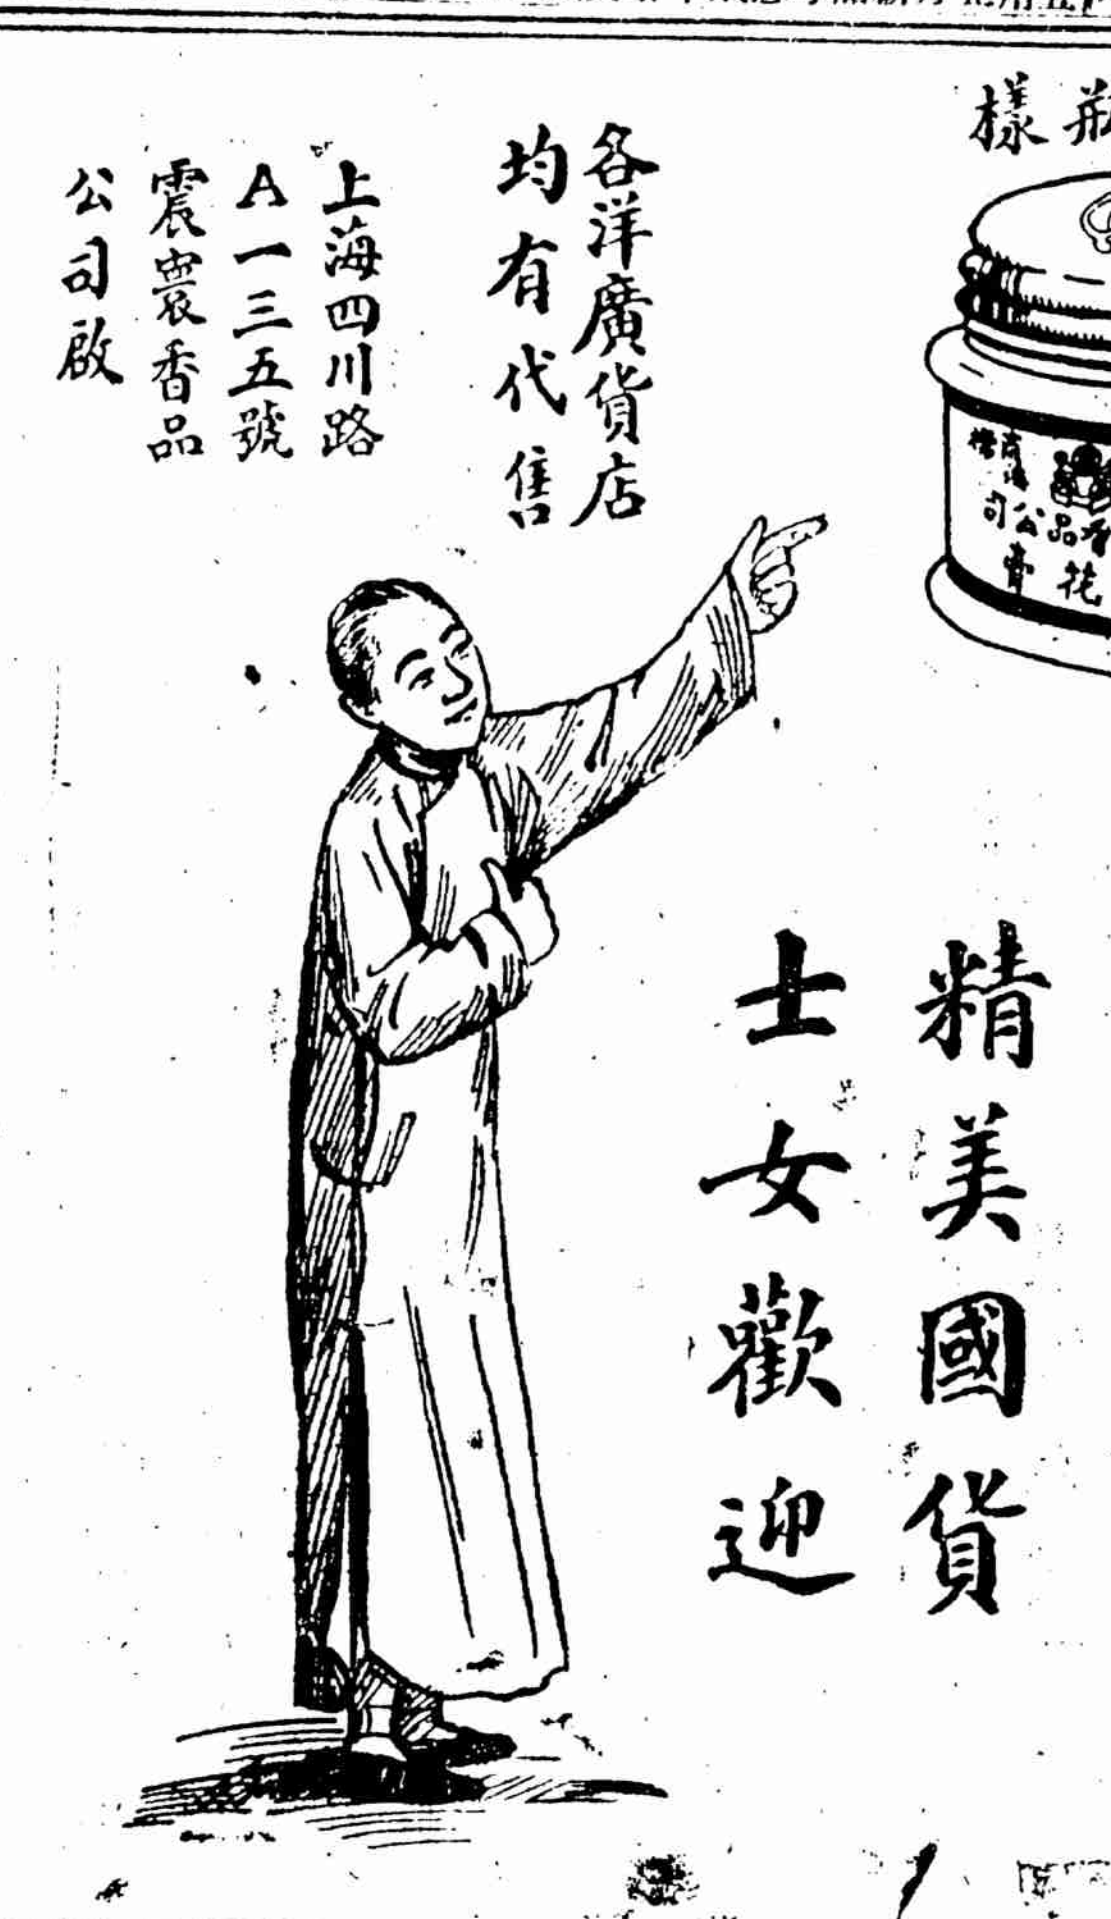 瓶樣
香品公司
花膏
精美國貨
士女歡迎
各洋廣貨店
均有代售
上海四川路
A一三五號
震寰香品
公司啟